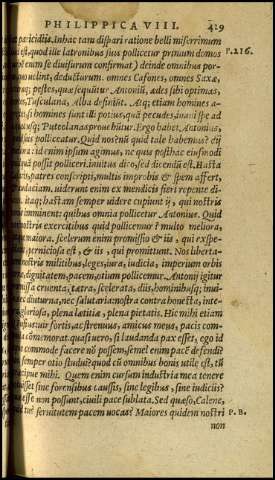 PHILIPPICA VIII. 419
paricidiis. In hac tam dispari ratione belli miserrimum
est, quod ille latronibus suis pollicetur primum domos P.216.
enim se diuisurum confirmat) deinde omnibus por-
uolint, deducturum. omnes Cafones, omnes Saxæ,
pestes, quæ sequūtur Antoniū, ædes sibi optimas,
Tusculana, Alba definiūt. Atq; etiam homines a-
si homines sunt illi potius, quā pecudes, inani spe ad
usq; Puteolana prouehūtur. Ergo habet Antonius,
suis polliceatur. Quid nos? nū quid tale habemus? dij
id enim ipsum agimus, ne quis posthac eiusmodi
possit polliceri. inuitus dico, sed dicendū est. Hasta
patres conscripti, multis improbis & spem affert,
audaciam. uiderunt enim ex mendicis fieri repente di-
Itaq; hastam semper uidere cupiunt ij, qui nostris
imminent: quibus omnia pollicetur Antonius. Quid
nostris exercitibus quid pollicemur? multo meliora,
maiora. scelerum enim promissio & iis, qui expe-
perniciosa est, & iis, qui promittunt. Nos liberta-
nostris militibus, leges, iura, iudicia, imperium orbis
dignitatem, pacem, otium pollicemur. Antonij igitur
promissa cruenta, tætra, scelerata, diis, hominibusq; inui-
nec diuturna, nec salutaria: nostra contra honesta, inte-
gloriosa, plena lætitiæ, plena pietatis. Hic mihi etiam
Fufius, uir fortis, ac strenuus, amicus meus, pacis com-
commemorat. quasi uero, si laudanda pax esset, ego id
commode facere nō possem. semel enim pacē defendi?
semper otio studui? quod cū omnibus bonis utile est, tū
præcipue mihi. Quem enim cursum industria mea tenere
sine forensibus caussis, sine legibus, sine iudiciis?
esse non possunt, ciuili pace sublata. Sed quæso, Calene,
seruitutem pacem uocas? Maiores quidem nostri P. B.
non